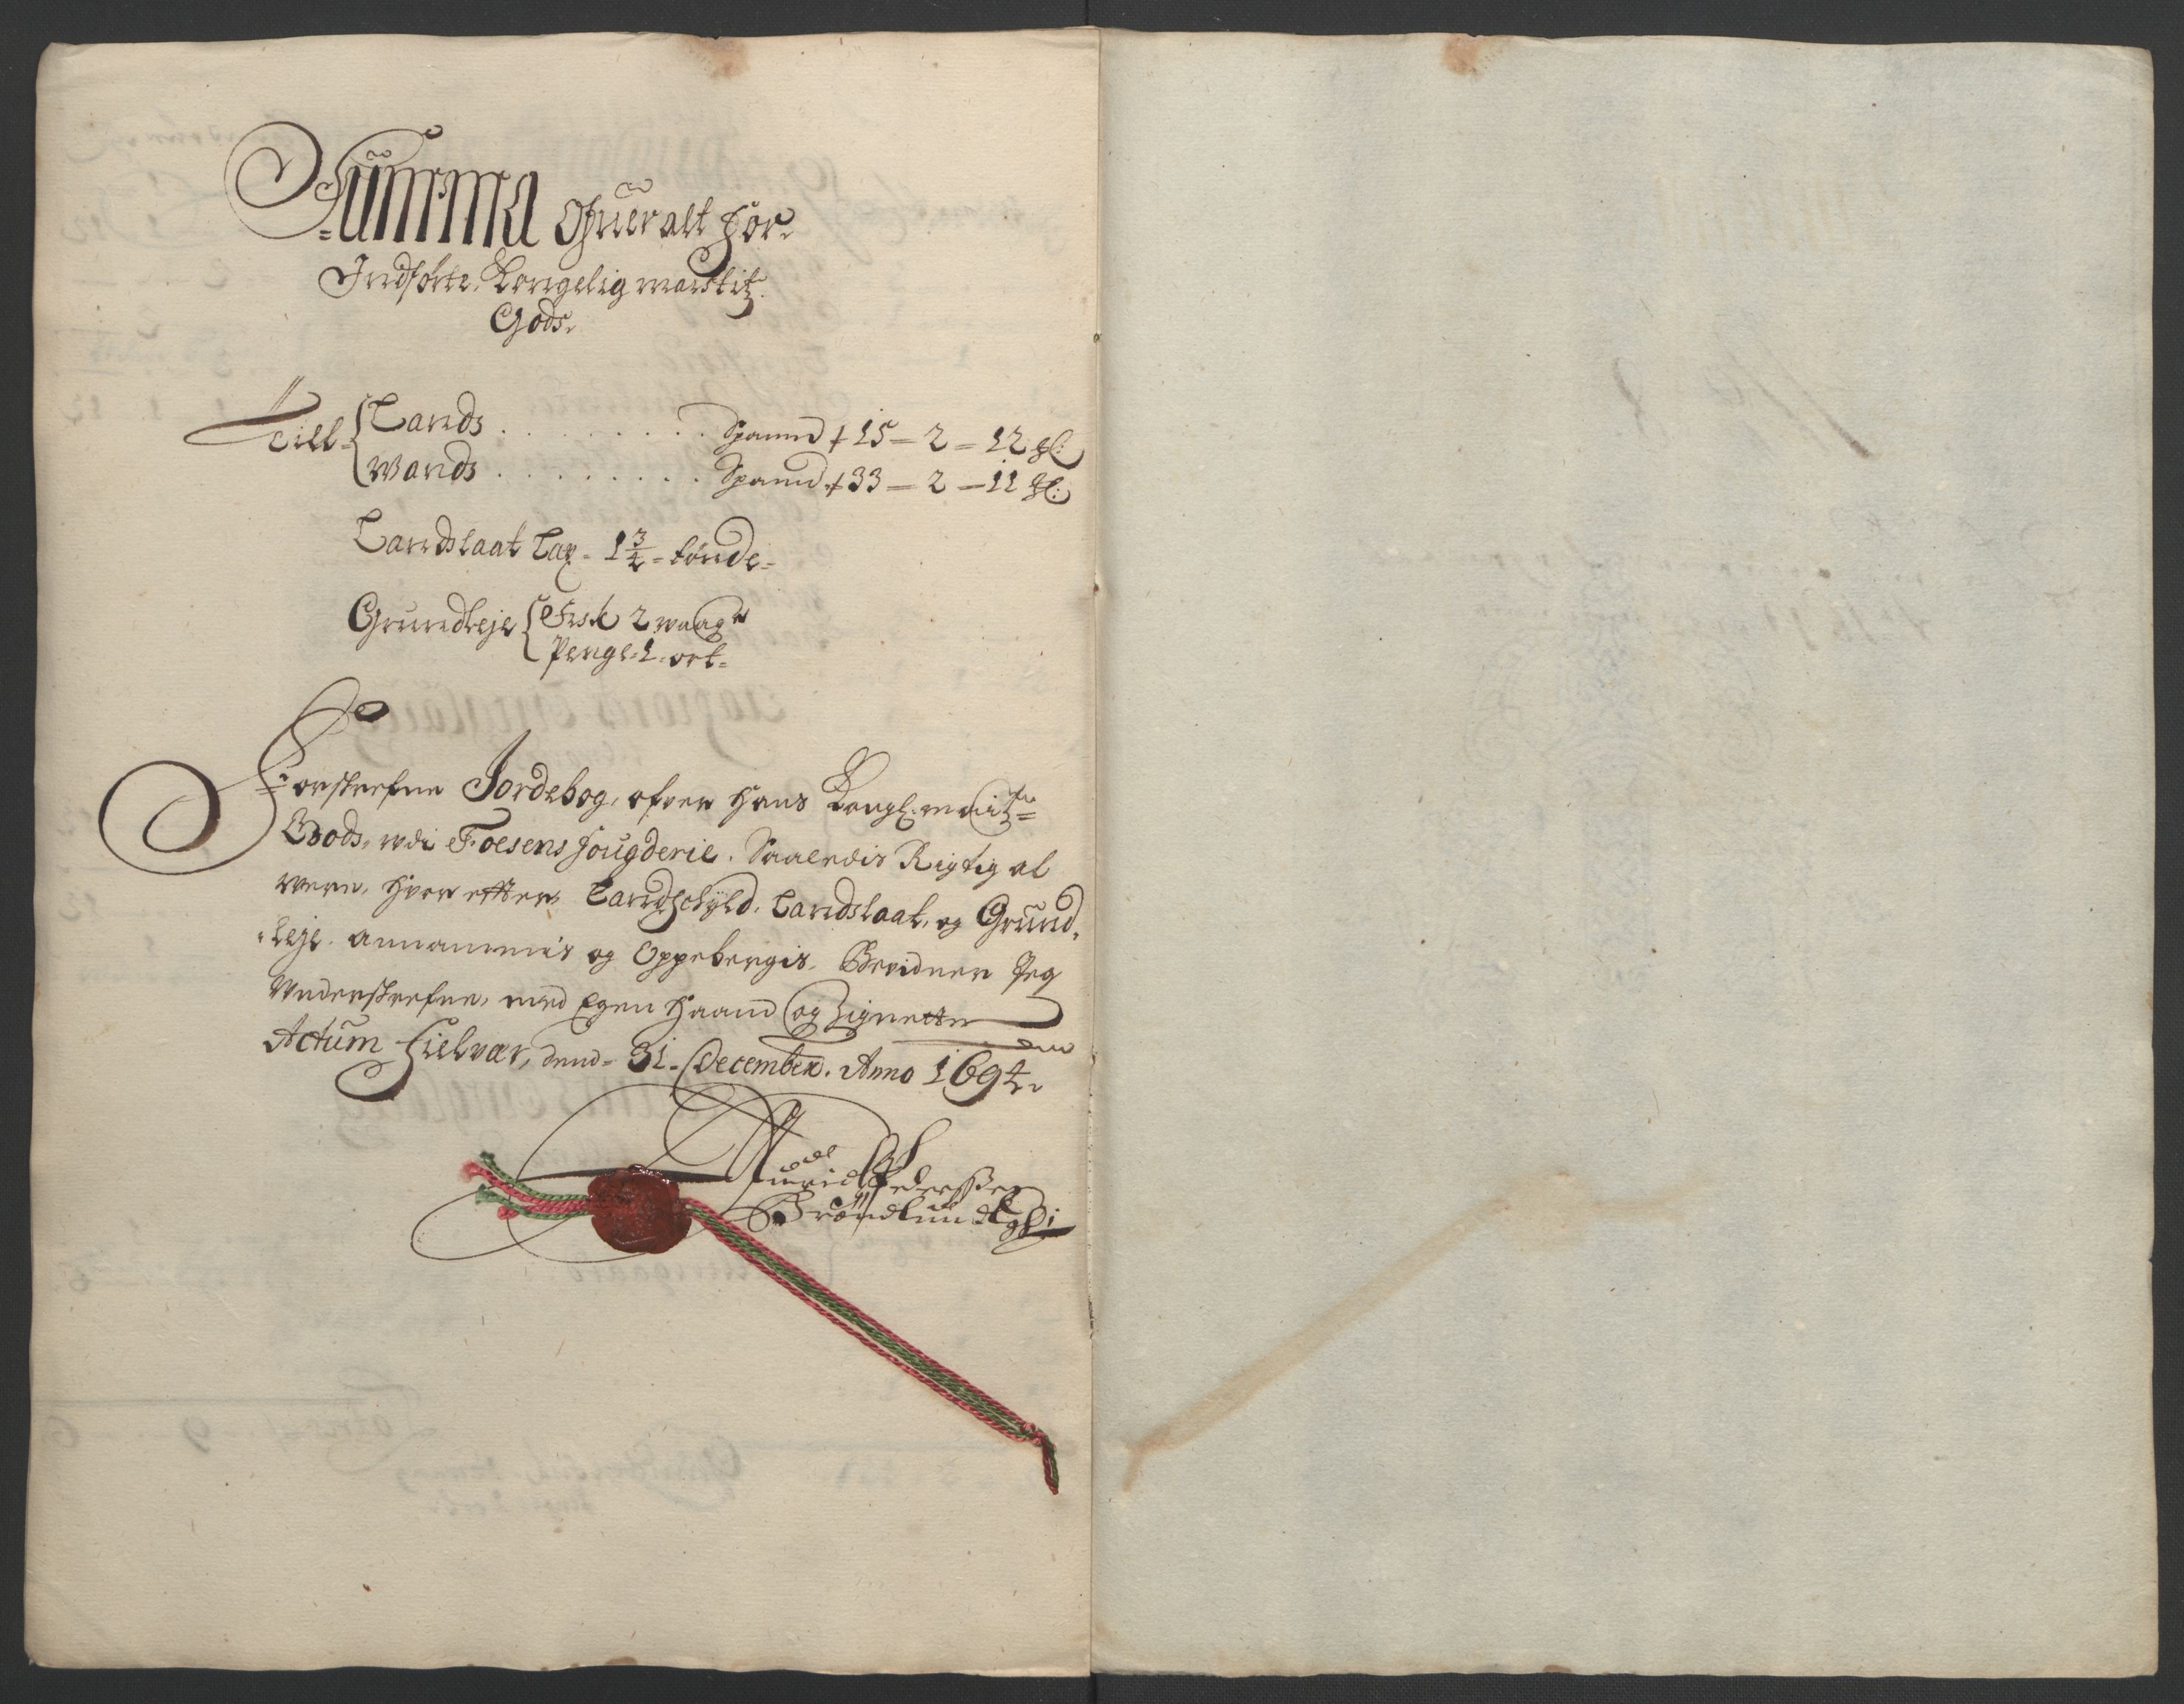 Summa Ofuer alt For
Indförte Kongelig majstitz
Gods.
Till Lands . . . . . . . . . Spannd 115 - 2 - 12 gl:
Wands . . . . . . . . . Spannd 133 - 2 - 11 gl:
Landslaat Lax - 1 3/4 - tönde -
Grundleje Fisk 2 waag
Penge - 1 - ort -
Forskrefne Jordebog, ofver Hans Kongl: maitz
Gods, udi Foesens fougderie. Saaledis Rigtig at
were, hvor effter Landschyld, Landslaat, og Grund,
leje. annammis og Oppebergis. Bevidner Jeg
Underskrefne, med Egen Haand og Zignette
Actum Hielvær, dend - 31 - December. Anno 1694.
Pederssen
Brøndlund